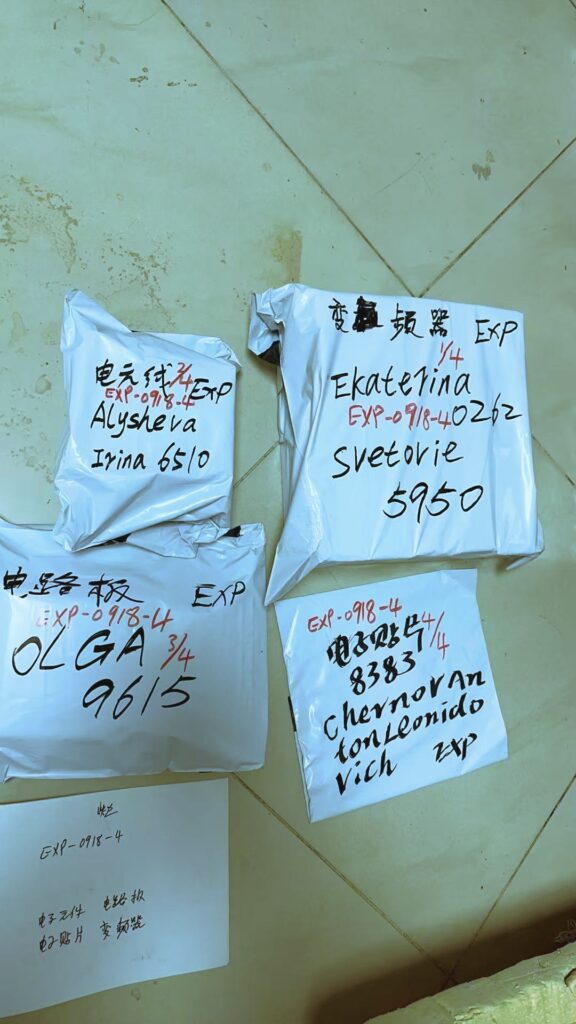 电元线 2/4
EXP-0918-4 EXP
Alysheva
Irina 6510
变 频器 EXP
1/4
Ekaterina
EXP-0918-4 0262
Svetorie
5950
电路板 EXP
EXP-0918-4
OLGA 3/4
9615
EXP-0918-4
电子贴片 4/4
8383
Chernov An
ton Leonido
vich EXP
EXP-0918-4
电子元件 电路板
电子贴片 变频器